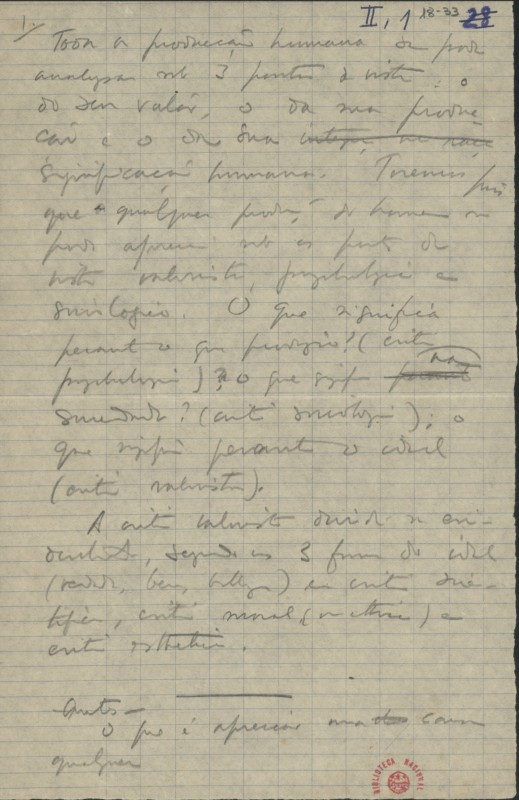 1.
II, 1 18-33 28
Toda a producção humana se pode
analysar sob 3 pontos de vista: o
do seu valôr, o da sua produc-
ção e o da sua
significação humana. Teremos pois
que qualquer prod. do homem se
pode apreciar sob os pontos de
vista valorista, psychologico e
sociologico. O que significa
perante o que produziu? (critica
psychologica); o que signifi perante na
sociedade? (critica sociologica); o
que signifi perante o ideal
(critica valorista).
A critica valorista divide-se evi-
dentemente, segundo as 3 formas do ideal
(verdade, bem, belleza) em critica scien-
tifica, critica moral, (ou ethica) e
critica esthetica.
Antes—
O que é apreciar uma cousa
qualquer
BIBLIOTECA NACIONAL